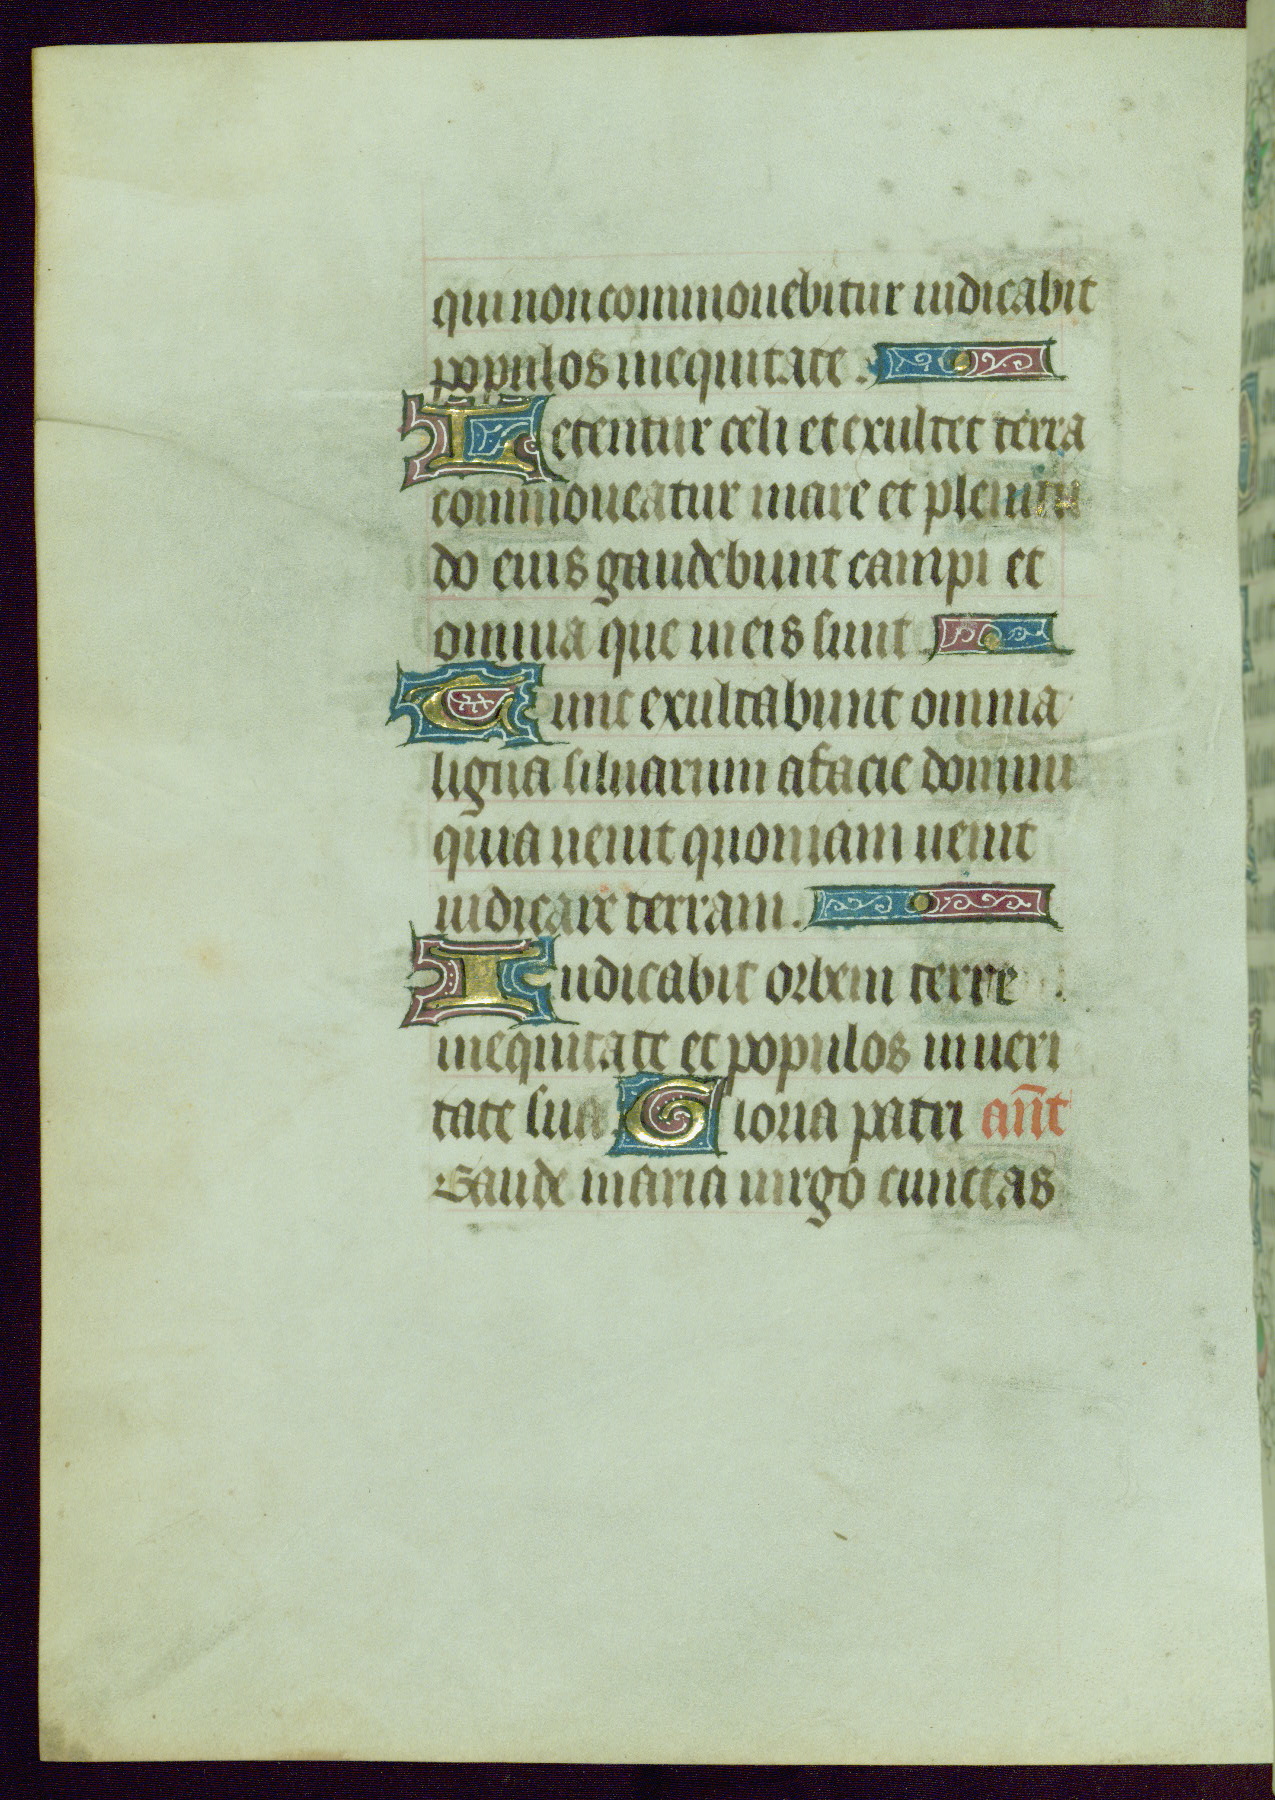 qui non commouebitur iudicabit
populos in equitate.
Letentur celi et exultet terra
commoueatur mare et plenitu
do eius gaudebunt campi et
omnia que in eis sunt.
Tunc exultabunt omnia
ligna siluarum a facie domini
quia uenit quoniam uenit
iudicare terram.
Iudicabit orbem terre
in equitate et populos in ueri
tate sua. Gloria patri añt
Gaude maria uirgo cunctas